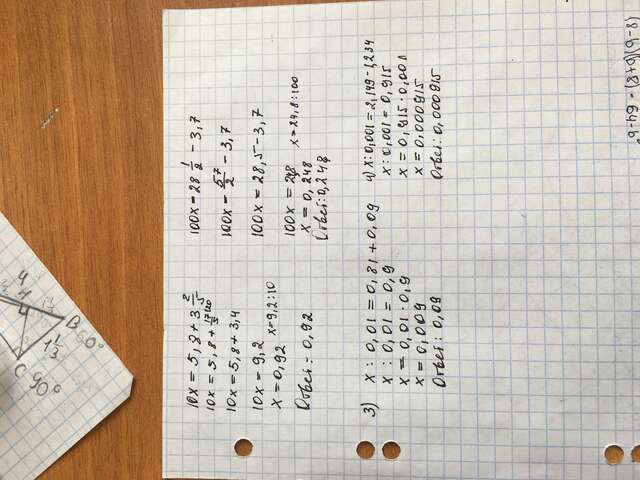 10x = 5,8 + 3 2/5
10x = 5,8 + 17/5
10x = 5,8 + 3,4
10x = 9,2 x=9,2:10
x = 0,92
Ответ: 0,92
100x = 28 1/2 - 3,7
100x = 57/2 - 3,7
100x = 28,5 - 3,7
100x = 24,8 x=24,8:100
x = 0,248
Ответ: 0,248
3) x : 0,01 = 0,81 + 0,09
x : 0,01 = 0,9
x = 0,01 · 0,9
x = 0,009
Ответ: 0,09
4) x : 0,001 = 2,149 - 1,234
x : 0,001 = 0,915
x = 0,915 · 0,001
x = 0,000915
Ответ: 0,000915
(8-b)(8+b) = 64-b²
B 60°
1 1/3
C 90°
4